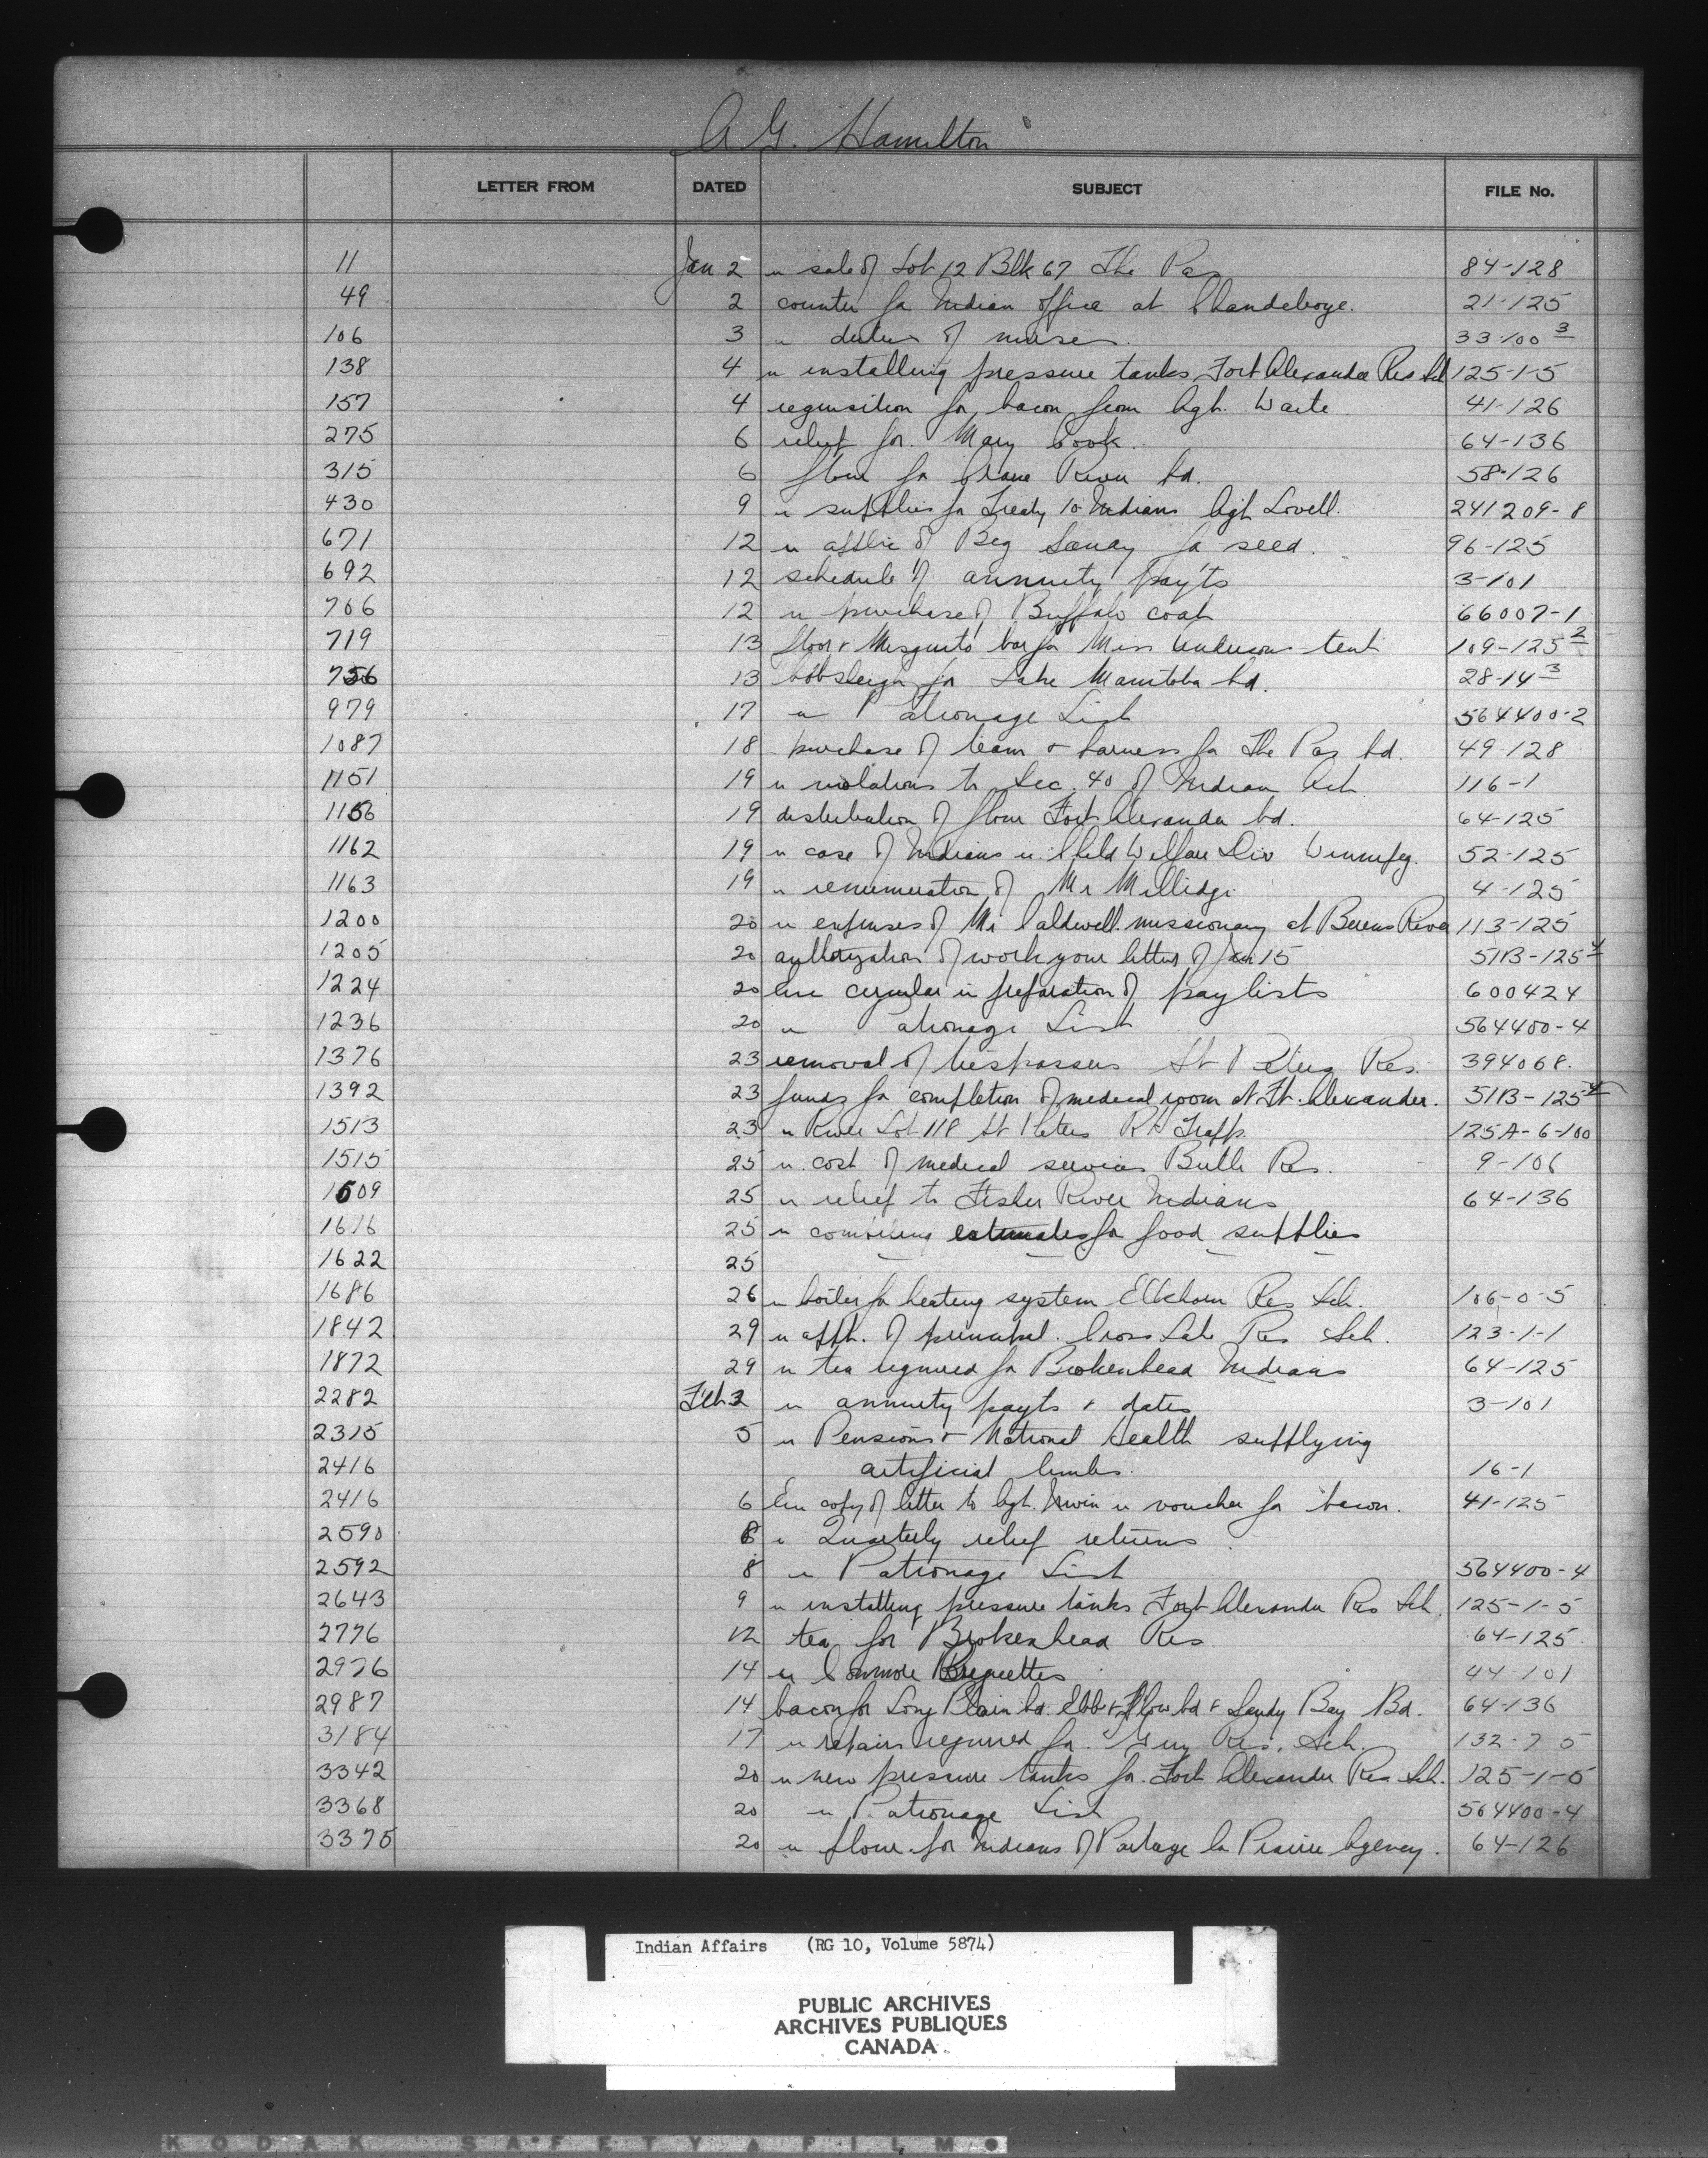 A G. Hamilton
LETTER FROM DATED SUBJECT FILE No.
11 Jan 2 re sale of Lot 12 Blk 67 The Pas 84-128
49 2 counter for Indian office at Clandeboye. 21-125
106 3 re duties of nurses. 33-100 3
138 4 re installing pressure tanks Fort Alexander Res Sch 125-1-5
157 4 requisition for bacon from Agt. Waite 41-126
275 6 relief for Mary Cook. 64-136
315 6 flour for Crane River bd. 58-126
430 9 re supplies for Treaty 10 Indians Agt Lovell. 241209-8
671 12 re applic of for seed. 96-125
692 12 schedule of annuity pay'ts 3-101
706 12 re purchase of Buffalo coat 66007-1
719 13 floor & Mosquito bar for Miss Anderson tent 109-125 2
756 13 bobsleigh for Lake Manitoba bd. 28-14 3
979 17 re Patronage List 564400-2
1087 18 purchase of team & harness for The Pas bd. 49-128
1151 19 re violations to Sec. 40 of Indian Act 116-1
1156 19 distribution of flour Fort Alexander bd. 64-125
1162 19 re case of Indians re Child Welfare Div Winnipeg. 52-125
1163 19 re renumeration of Mr Millidge 4-125
1200 20 re expenses of Mr Caldwell missionary at Berens River 113-125
1205 20 authorization of work your letter of Jan 15 51B-125 4
1224 20 Enc circular in preparation of pay lists 600424
1236 20 re Patronage List 564400-4
1376 23 removal of trespassers St Peters Res. 394068.
1392 23 funds for completion of medical room at Ft. Alexander. 51B-125 4
1513 23 re River Lot 118 St Peters R H Trapp. 125A-6-100
1515 25 re cost of medical services Birtle Res. 9-106
1609 25 re relief to Fisher River Indians 64-136
1616 25 re compiling estimates for food supplies
1622 25
1686 26 re boiler for heating system Elkhorn Res Sch. 106-0-5
1842 29 re appt. of principal. Cross Lake Res Sch. 123-1-1
1872 29 re tea required for Brokenhead Indians 64-125
2282 Feb 2 re annuity payts & dates 3-101
2315 5 re Pensions & National Health supplying
2416 artificial limbs. 16-1
2416 6 Enc copy of letter to Agt. Irwin re voucher for bacon. 41-125
2590 8 re Quarterly relief returns
2592 8 re Patronage List 564400-4
2643 9 re installing pressure tanks Fort Alexander Res Sch. 125-1-5
2776 12 tea for Brokenhead Res 64-125
2976 14 re Briquettes 44-101
2987 14 bacon for Long Plain bd. Ebb & Flow bd & Sandy Bay Bd. 64-136
3184 17 re repairs required for Guy Res. Sch. 132-7 5
3342 20 re new pressure tanks for Fort Alexander Res Sch. 125-1-5
3368 20 re Patronage List 564400-4
3375 20 re flour for Indians of Portage la Prairie Agency. 64-126
Indian Affairs (RG 10, Volume 5874)
PUBLIC ARCHIVES
ARCHIVES PUBLIQUES
CANADA
KODAK SAFETY FILM